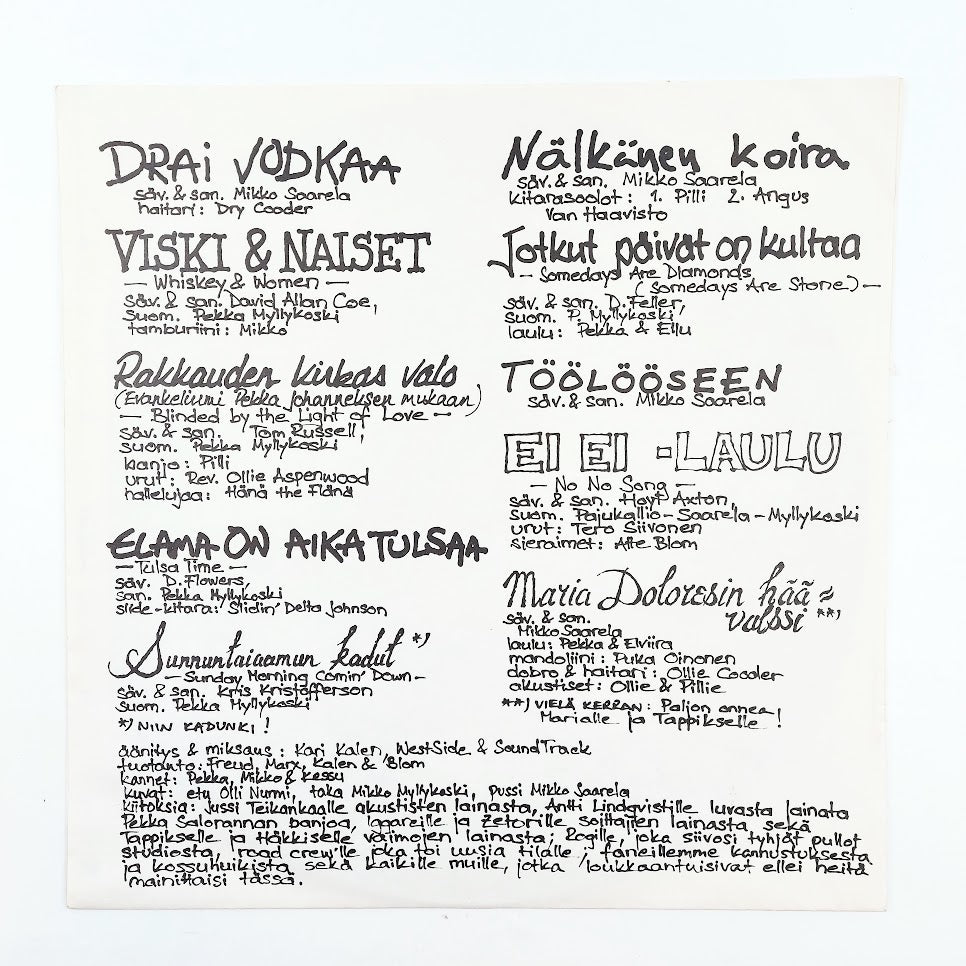 DRAi VODKAA
säv. & san. Mikko Saarela
haitari: Dry Cooder
VISKI & NAISET
— Whiskey & Women —
säv. & san. David Allan Coe,
suom. Pekka Myllykoski
tamburiini: Mikko
Rakkauden kirkas valo
(Evankeliumi Pekka Johanneksen mukaan)
— Blinded by the Light of Love —
säv. & san. Tom Russell,
suom. Pekka Myllykoski
banjo: Pilli
urut: Rev. Ollie Aspenwood
hallelujaa: Hänä the Flänä
ELÄMÄ ON AIKA TULSAA
— Tulsa Time —
säv. D. Flowers,
san. Pekka Myllykoski
slide-kitara: Slidin' Delta Johnson
Sunnuntaiaamun kadut *)
— Sunday Morning Comin' Down —
säv. & san. Kris Kristofferson
suom. Pekka Myllykoski
*) NIIN KADUNKI!
Nälkänen koira
säv. & san. Mikko Saarela
kitarasoolot: 1. Pilli 2. Angus
Van Haavisto
Jotkut päivät on kultaa
— Somedays Are Diamonds
(Somedays Are Stone) —
säv. & san. D. Feller,
suom. P. Myllykoski
laulu: Pekka & Ellu
TÖÖLÖÖSEEN
säv. & san. Mikko Saarela
EI EI -LAULU
— No No Song —
säv. & san. Hoyt Axton,
suom. Pajukallio - Saarela - Myllykoski
urut: Tero Siivonen
sieraimet: Atte Blom
Maria Doloresin hää=
valssi **)
säv. & san.
Mikko Saarela
laulu: Pekka & Elviira
mandoliini: Puka Oinonen
dobro & haitari: Ollie Cooder
akustiset: Ollie & Pillie
**) VIELÄ KERRAN: Paljon onnea
Marialle ja Tappikselle!
äänitys & miksaus: Kari Kalen, WestSide & SoundTrack
tuotanto: Freud, Marx, Kalen & Blom
kannet: Pekka, Mikko & Kessu
kuvat: etu Olli Nurmi, taka Mikko Myllykoski, pussi Mikko Saarela
kiitoksia: Jussi Teikonkaalle akustisten lainasta, Antti Lindqvistille luvasta lainata
Pekka Salorannan banjoa, Lapareille ja Zetorille soittajien lainasta, sekä
Tappikselle ja Häkkiselle vaimojen lainasta; Rogille, joka siivosi tyhjät pullot
studiosta, road crew'lle joka toi uusia tilalle; faneillemme kannustuksesta
ja kossuhuikista sekä kaikille muille, jotka loukkaantuisivat ellei heitä
mainittaisi tässä.